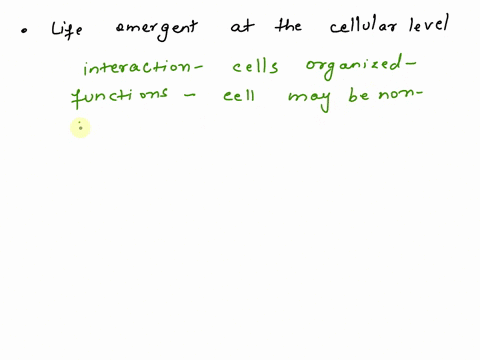 • Life emergent at the cellular level
interaction- cells organized-
functions - cell may be non-